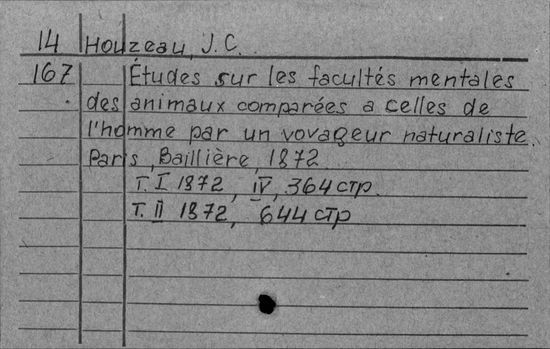 14 Houzeau, J.C.
167 Études sur les facultés mentales
des animaux comparées a celles de
l'homme par un voyageur naturaliste.
Paris, Baillière, 1872
T. I 1872, IV, 364 стр.
T. II 1872, 644 стр